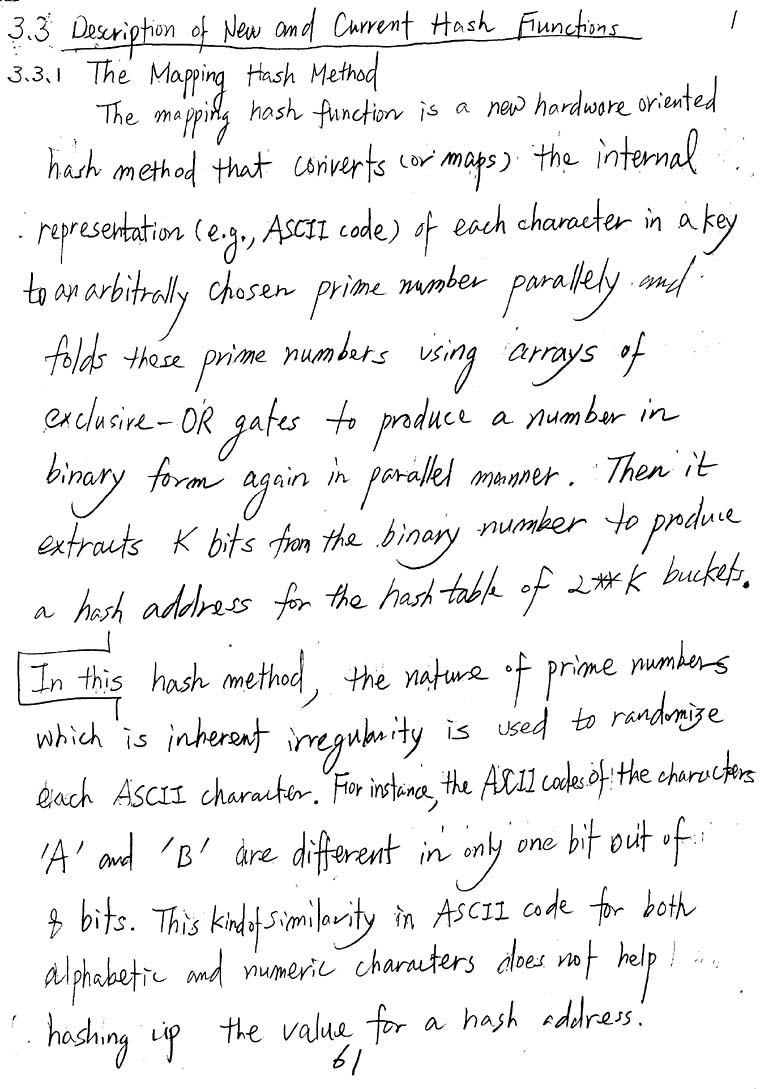 3.3 Description of New and Current Hash Functions 1
3.3.1 The Mapping Hash Method
The mapping hash function is a new hardware oriented
hash method that converts (or maps) the internal
representation (e.g., ASCII code) of each character in a key
to an arbitrally chosen prime number parallely and
folds these prime numbers using arrays of
exclusive-OR gates to produce a number in
binary form again in parallel manner. Then it
extracts K bits from the binary number to produce
a hash address for the hash table of 2**K buckets.
In this hash method, the nature of prime numbers
which is inherent irregularity is used to randomize
each ASCII character. For instance, the ASCII codes of the characters
'A' and 'B' are different in only one bit out of
8 bits. This kind of similarity in ASCII code for both
alphabetic and numeric characters does not help
hashing up the value for a hash address.
61